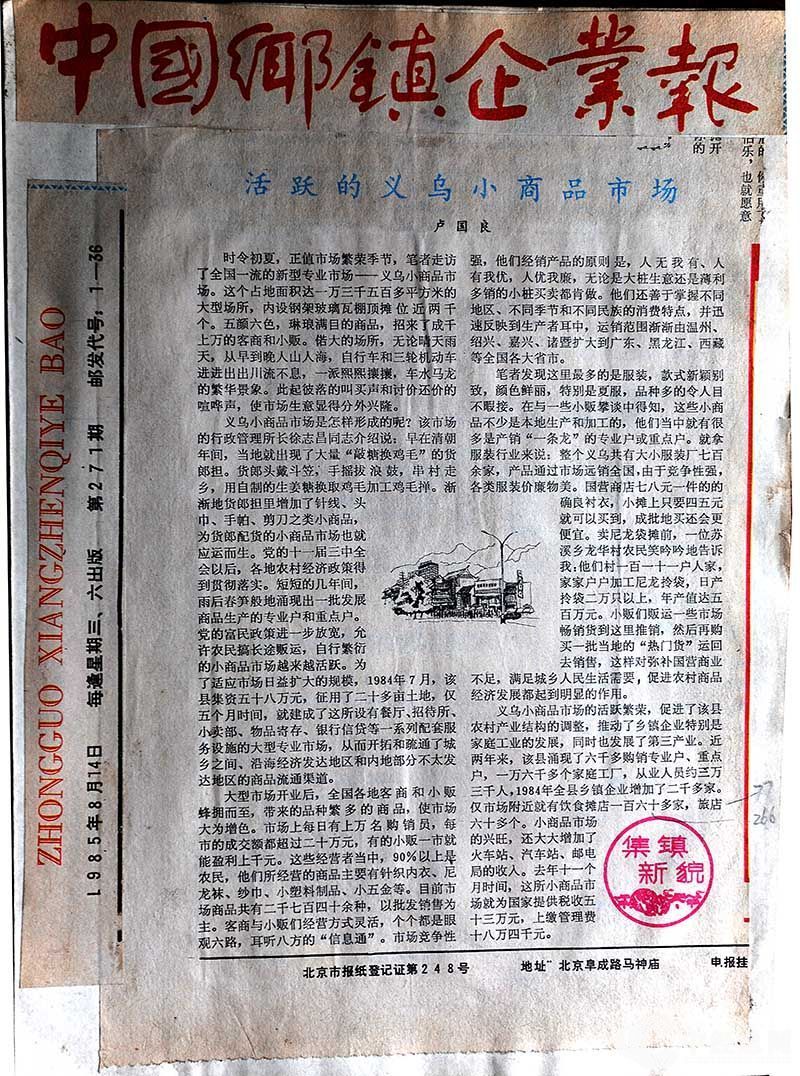 中國鄉鎮企業報
ZHONGGUO XIANGZHENQIYE BAO
1985年8月14日 每逢星期三、六出版 第271期 邮发代号：1—36
活跃的义乌小商品市场
卢国良
时令初夏，正值市场繁荣季节，笔者走访
了全国一流的新型专业市场——义乌小商品市
场。这个占地面积达一万三千五百多平方米的
大型场所，内设钢架玻璃瓦棚顶摊位近两千
个。五颜六色，琳琅满目的商品，招来了成千
上万的客商和小贩。偌大的场所，无论晴天雨
天，从早到晚人山人海，自行车和三轮机动车
进进出出川流不息，一派熙熙攘攘，车水马龙
的繁华景象。此起彼落的叫买声和讨价还价的
喧哗声，使市场生意显得分外兴隆。
义乌小商品市场是怎样形成的呢？该市场
的行政管理所长徐志昌同志介绍说：早在清朝
年间，当地就出现了大量“敲糖换鸡毛”的货
郎担。货郎头戴斗笠，手摇拔浪鼓，串村走
乡，用自制的生姜糖换取鸡毛加工鸡毛掸。渐
渐地货郎担里增加了针线、头
巾、手帕、剪刀之类小商品，
为货郎配货的小商品市场也就
应运而生。党的十一届三中全
会以后，各地农村经济政策得
到贯彻落实。短短的几年间，
雨后春笋般地涌现出一批发展
商品生产的专业户和重点户。
党的富民政策进一步放宽，允
许农民搞长途贩运，自行繁衍
的小商品市场越来越活跃。为
了适应市场日益扩大的规模，1984年7月，该
县集资五十八万元，征用了二十多亩土地，仅
五个月时间，就建成了这所设有餐厅、招待所、
小卖部、物品寄存、银行信贷等一系列配套服
务设施的大型专业市场，从而开拓和疏通了城
乡之间、沿海经济发达地区和内地部分不太发
达地区的商品流通渠道。
大型市场开业后，全国各地客商和小贩
蜂拥而至，带来的品种繁多的商品，使市场
大为增色。市场上每日有上万名购销员，每
市的成交额都超过二十万元，有的小贩一市就
能盈利上千元。这些经营者当中，90%以上是
农民，他们所经营的商品主要有针织内衣、尼
龙袜、纱巾、小塑料制品、小五金等。目前市
场商品共有二千七百四十余种，以批发销售为
主。客商与小贩们经营方式灵活，个个都是眼
观六路，耳听八方的“信息通”。市场竞争性
强，他们经销产品的原则是，人无我有、人
有我优，人优我廉，无论是大桩生意还是薄利
多销的小桩买卖都肯做。他们还善于掌握不同
地区、不同季节和不同民族的消费特点，并迅
速反映到生产者耳中，运销范围渐渐由温州、
绍兴、嘉兴、诸暨扩大到广东、黑龙江、西藏
等全国各大省市。
笔者发现这里最多的是服装，款式新颖别
致，颜色鲜丽，特别是夏服，品种多的令人目
不暇接。在与一些小贩攀谈中得知，这些小商
品不少是本地生产和加工的，他们当中就有很
多是产销“一条龙”的专业户或重点户。就拿
服装行业来说：整个义乌共有大小服装厂七百
余家，产品通过市场远销全国，由于竞争性强，
各类服装价廉物美。国营商店七八元一件的的
确良衬衣，小摊上只要四五元
就可以买到，成批地买还会更
便宜。卖尼龙袋摊前，一位苏
溪乡龙华村农民笑吟吟地告诉
我：他们村一百一十一户人家，
家家户户加工尼龙拎袋，日产
拎袋二万只以上，年产值达五
百万元。小贩们贩运一些市场
畅销货到这里推销，然后再购
买一批当地的“热门货”运回
去销售，这样对弥补国营商业
不足，满足城乡人民生活需要，促进农村商品
经济发展都起到明显的作用。
义乌小商品市场的活跃繁荣，促进了该县
农村产业结构的调整，推动了乡镇企业特别是
家庭工业的发展，同时也发展了第三产业。近
两年来，该县涌现了六千多购销专业户、重点
户，一万六千多个家庭工厂，从业人员约三万
三千人，1984年全县乡镇企业增加了二千多家。
仅市场附近就有饮食摊店一百六十多家，旅店
六十多个。小商品市场
的兴旺，还大大增加了
火车站、汽车站、邮电
局的收入。去年十一个
月时间，这所小商品市
场就为国家提供税收五
十三万元，上缴管理费
十八万四千元。
集镇
新貌
北京市报纸登记证第248号 地址：北京阜成路马神庙 申报挂
伯乐，
也就愿意